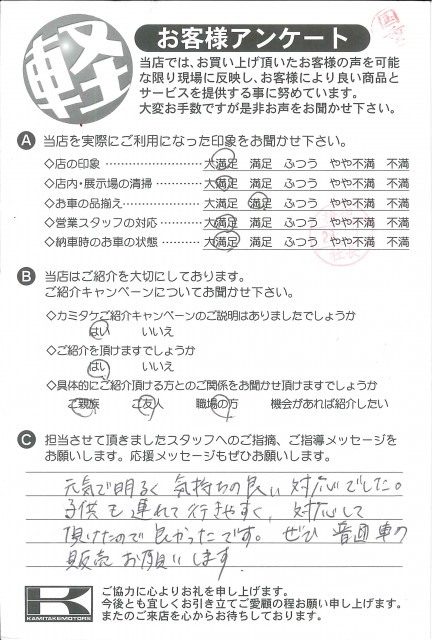 軽
お客様アンケート
当店では、お買い上げ頂いたお客様の声を可能
な限り現場に反映し、お客様により良い商品と
サービスを提供する事に努めています。
大変お手数ですが是非お声をお聞かせ下さい。
A 当店を実際にご利用になった印象をお聞かせ下さい。
◇店の印象 …………………… 大満足 満足 ふつう やや不満 不満
◇店内・展示場の清掃 ………… 大満足 満足 ふつう やや不満 不満
◇お車の品揃え ……………… 大満足 満足 ふつう やや不満 不満
◇営業スタッフの対応 ………… 大満足 満足 ふつう やや不満 不満
◇納車時のお車の状態 ………… 大満足 満足 ふつう やや不満 不満
B 当店はご紹介を大切にしております。
ご紹介キャンペーンについてお聞かせ下さい。
◇カミタケご紹介キャンペーンのご説明はありましたでしょうか
はい いいえ
◇ご紹介を頂けますでしょうか
はい いいえ
◇具体的にご紹介頂ける方とのご関係をお聞かせ頂けますでしょうか
ご親族 ご友人 職場の方 機会があれば紹介したい
C 担当させて頂きましたスタッフへのご指摘、ご指導メッセージを
お願いします。応援メッセージもぜひお願いします。
元気で明るく気持ちの良い対応でした。
子供も連れて行きやすく、対応して
頂けたので良かったです。ぜひ普通車の
販売お願いします。
KAMITAKEMOTORS
ご協力に心よりお礼を申し上げます。
今後とも宜しくお引き立てご愛顧の程お願い申し上げます。
またのご来店を心からお待ちしております。